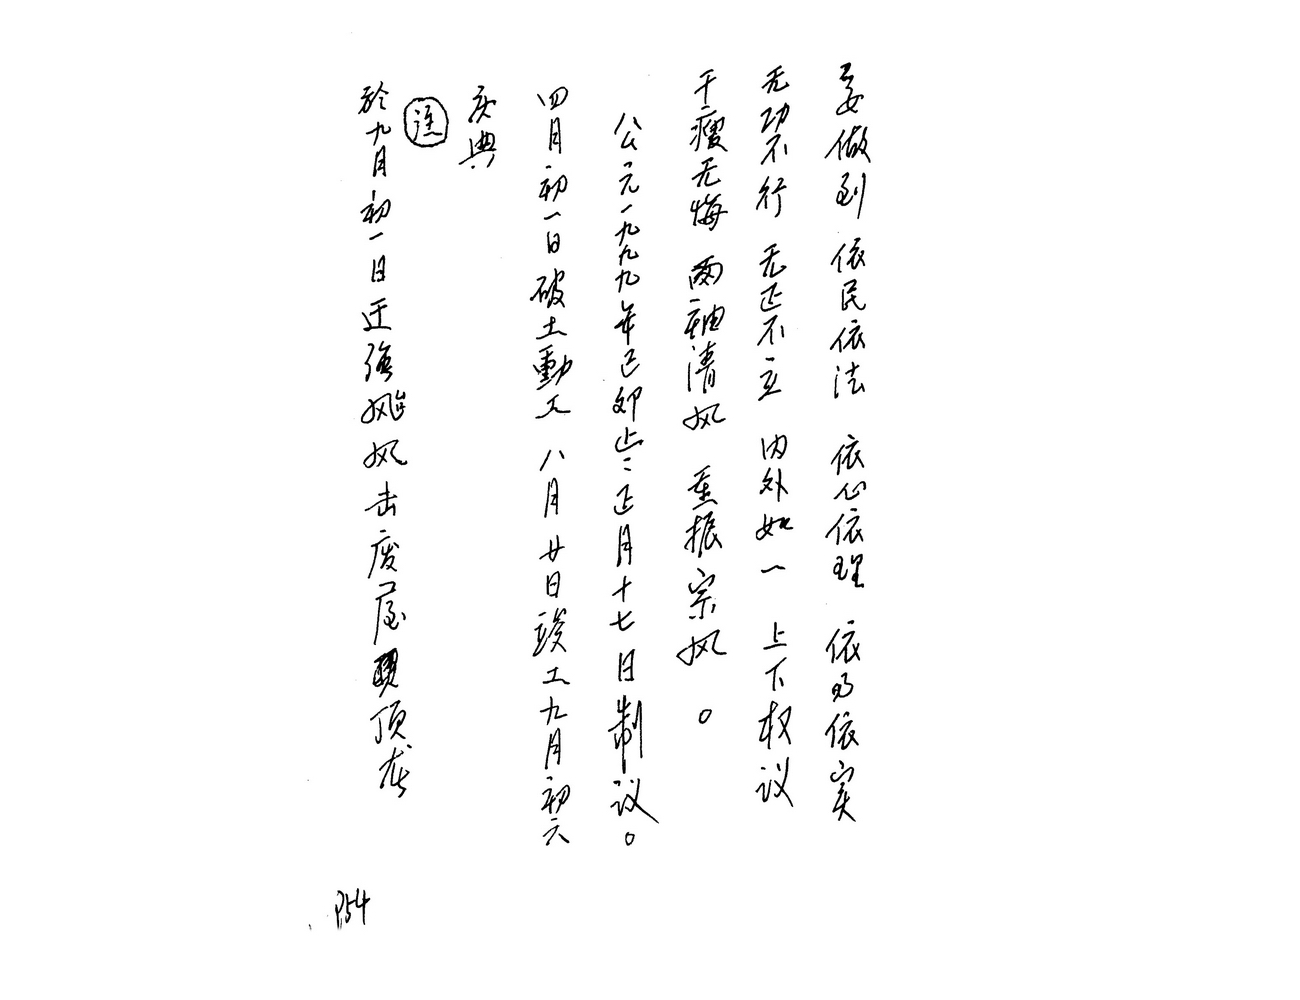 要做到 依民依法 依心依理 依为依实
无功不行 无正不立 内外如一 上下权议
干瘦无悔 两袖清风 重振宗风。
公元一九九九年己卯岁正月十七日制议。
四月初一日破土動工 八月廿日竣工九月初六
庆典
注
於九月初一日正強飓风击废屋顶
P54